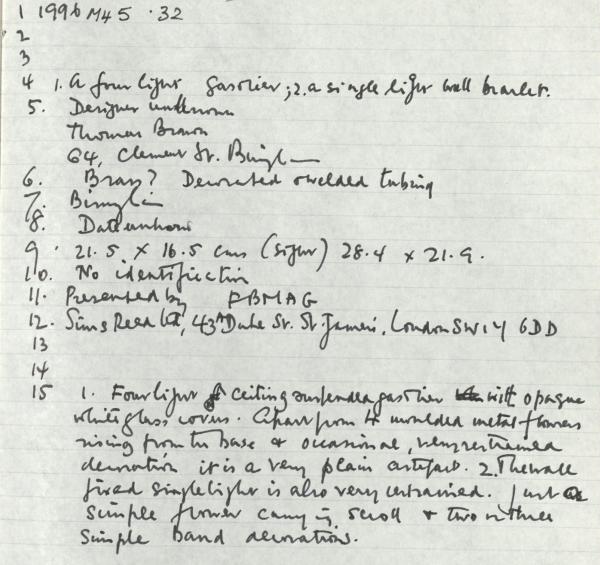 1 1996 M45 .32
2
3
4 1. A four light gasolier; 2. a single light wall bracket.
5. Designer unknown
Thomas Brawn
64, Clement St. Birmgh
6. Brass? Decorated & welded tubing
7. Birmghm
8. Date unknown
9. 21.5 x 16.5 cms (sight) 28.4 x 21.9.
10. No identification
11. Presented by FBMAG
12. Sims Reed Ltd, 43A Duke St. St James, London SW1Y 6DD
13
14
15 1. Four light ceiling suspended gasolier with opaque
white glass covers. Apart from 4 moulded metal flowers
rising from the base & occasional, very restrained
decoration it is a very plain artefact. 2. The wall
fixed single light is also very restrained. Just a
simple flower carrying scroll & two or three
simple band decorations.